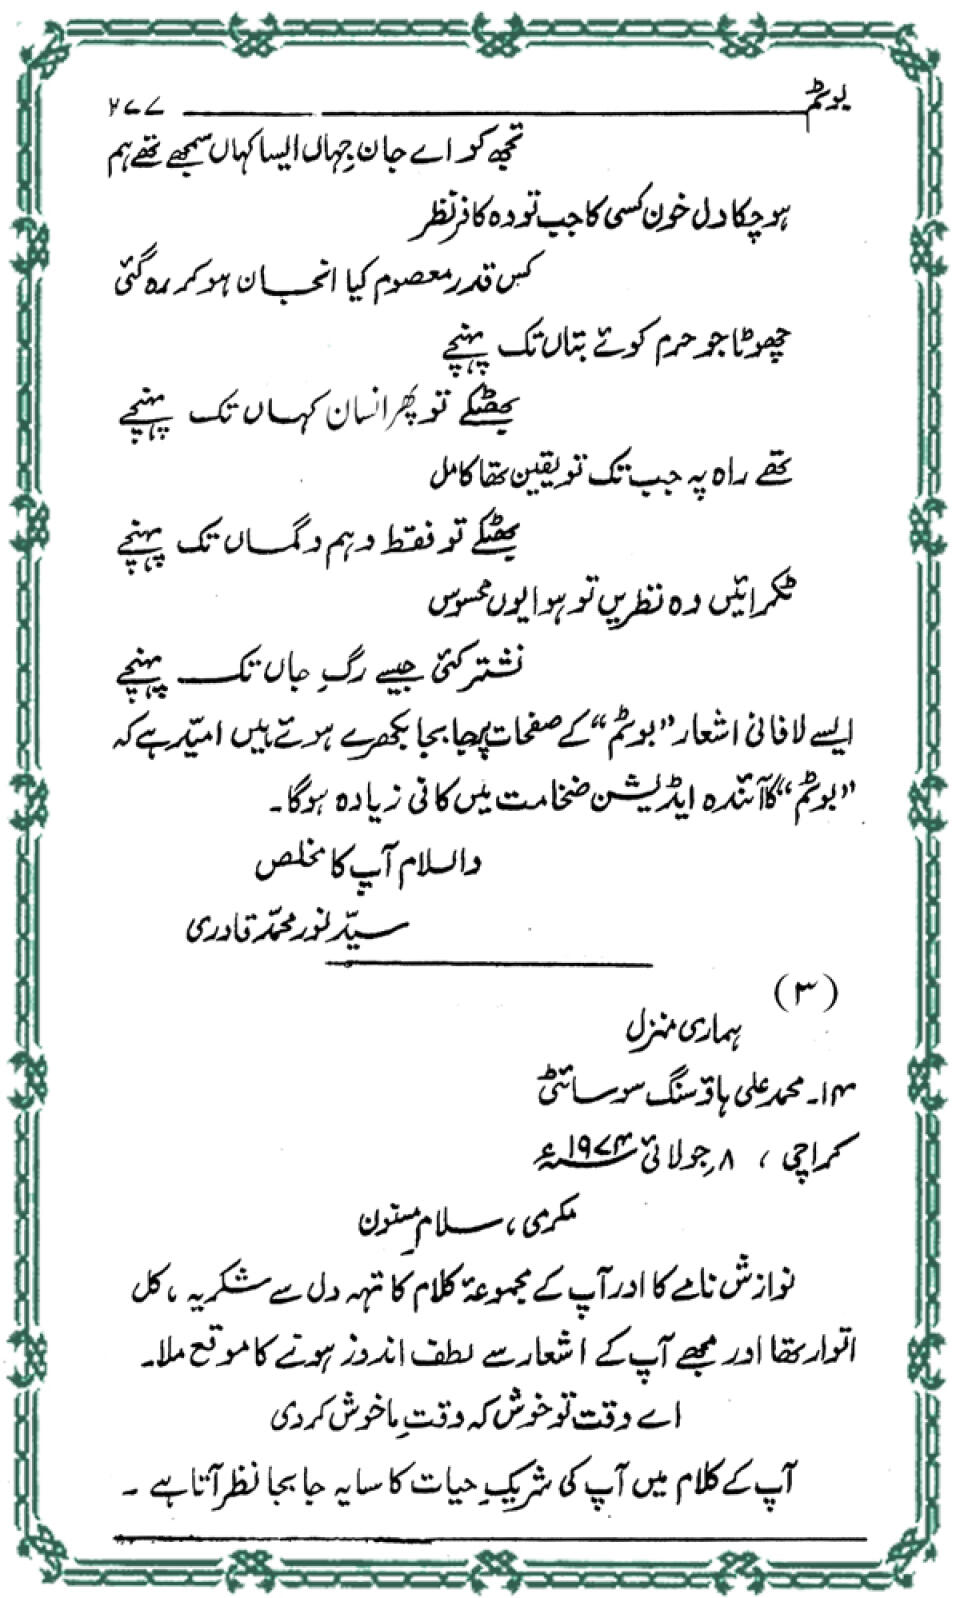 بوٹم ۲۷۷
تجھ کو اے جانِ جہاں ایسا کہاں سمجھے تھے ہم
ہو چکا دل خون کسی کا جب تو وہ کافر نظر
کس قدر معصوم کیا انجان ہو کر رہ گئی
چھوٹا جو حرم کوئے بتاں تک پہنچے
بھٹکے تو پھر انسان کہاں تک پہنچے
تھے راہ پہ جب تک تو یقین تھا کامل
بھٹکے تو فقط وہم و گماں تک پہنچے
ٹکرائیں وہ نظریں تو ہوا یوں محسوس
نشتر کئی جیسے رگِ جاں تک پہنچے
ایسے لافانی اشعار ”بوٹم“ کے صفحات پر جا بجا بکھرے ہوئے ہیں امیّد ہے کہ
”بوٹم“ کا آئندہ ایڈیشن ضخامت میں کافی زیادہ ہوگا۔
والسلام آپ کا مخلص
سیّد نور محمّد قادری
(۳)
ہماری منزل
۱۴۔ محمد علی ہاؤسنگ سوسائٹی
کراچی ، ۸؍جولائی ۱۹۷۴ء
مکرمی ، سلام مسنون
نوازش نامے کا اور آپ کے مجموعۂ کلام کا تہہ دل سے شکریہ ، کل
اتوار تھا اور مجھے آپ کے اشعار سے لطف اندوز ہونے کا موقع ملا۔
اے وقت تو خوش کہ وقتِ ما خوش کردی
آپ کے کلام میں آپ کی شریکِ حیات کا سایہ جا بجا نظر آتا ہے ۔